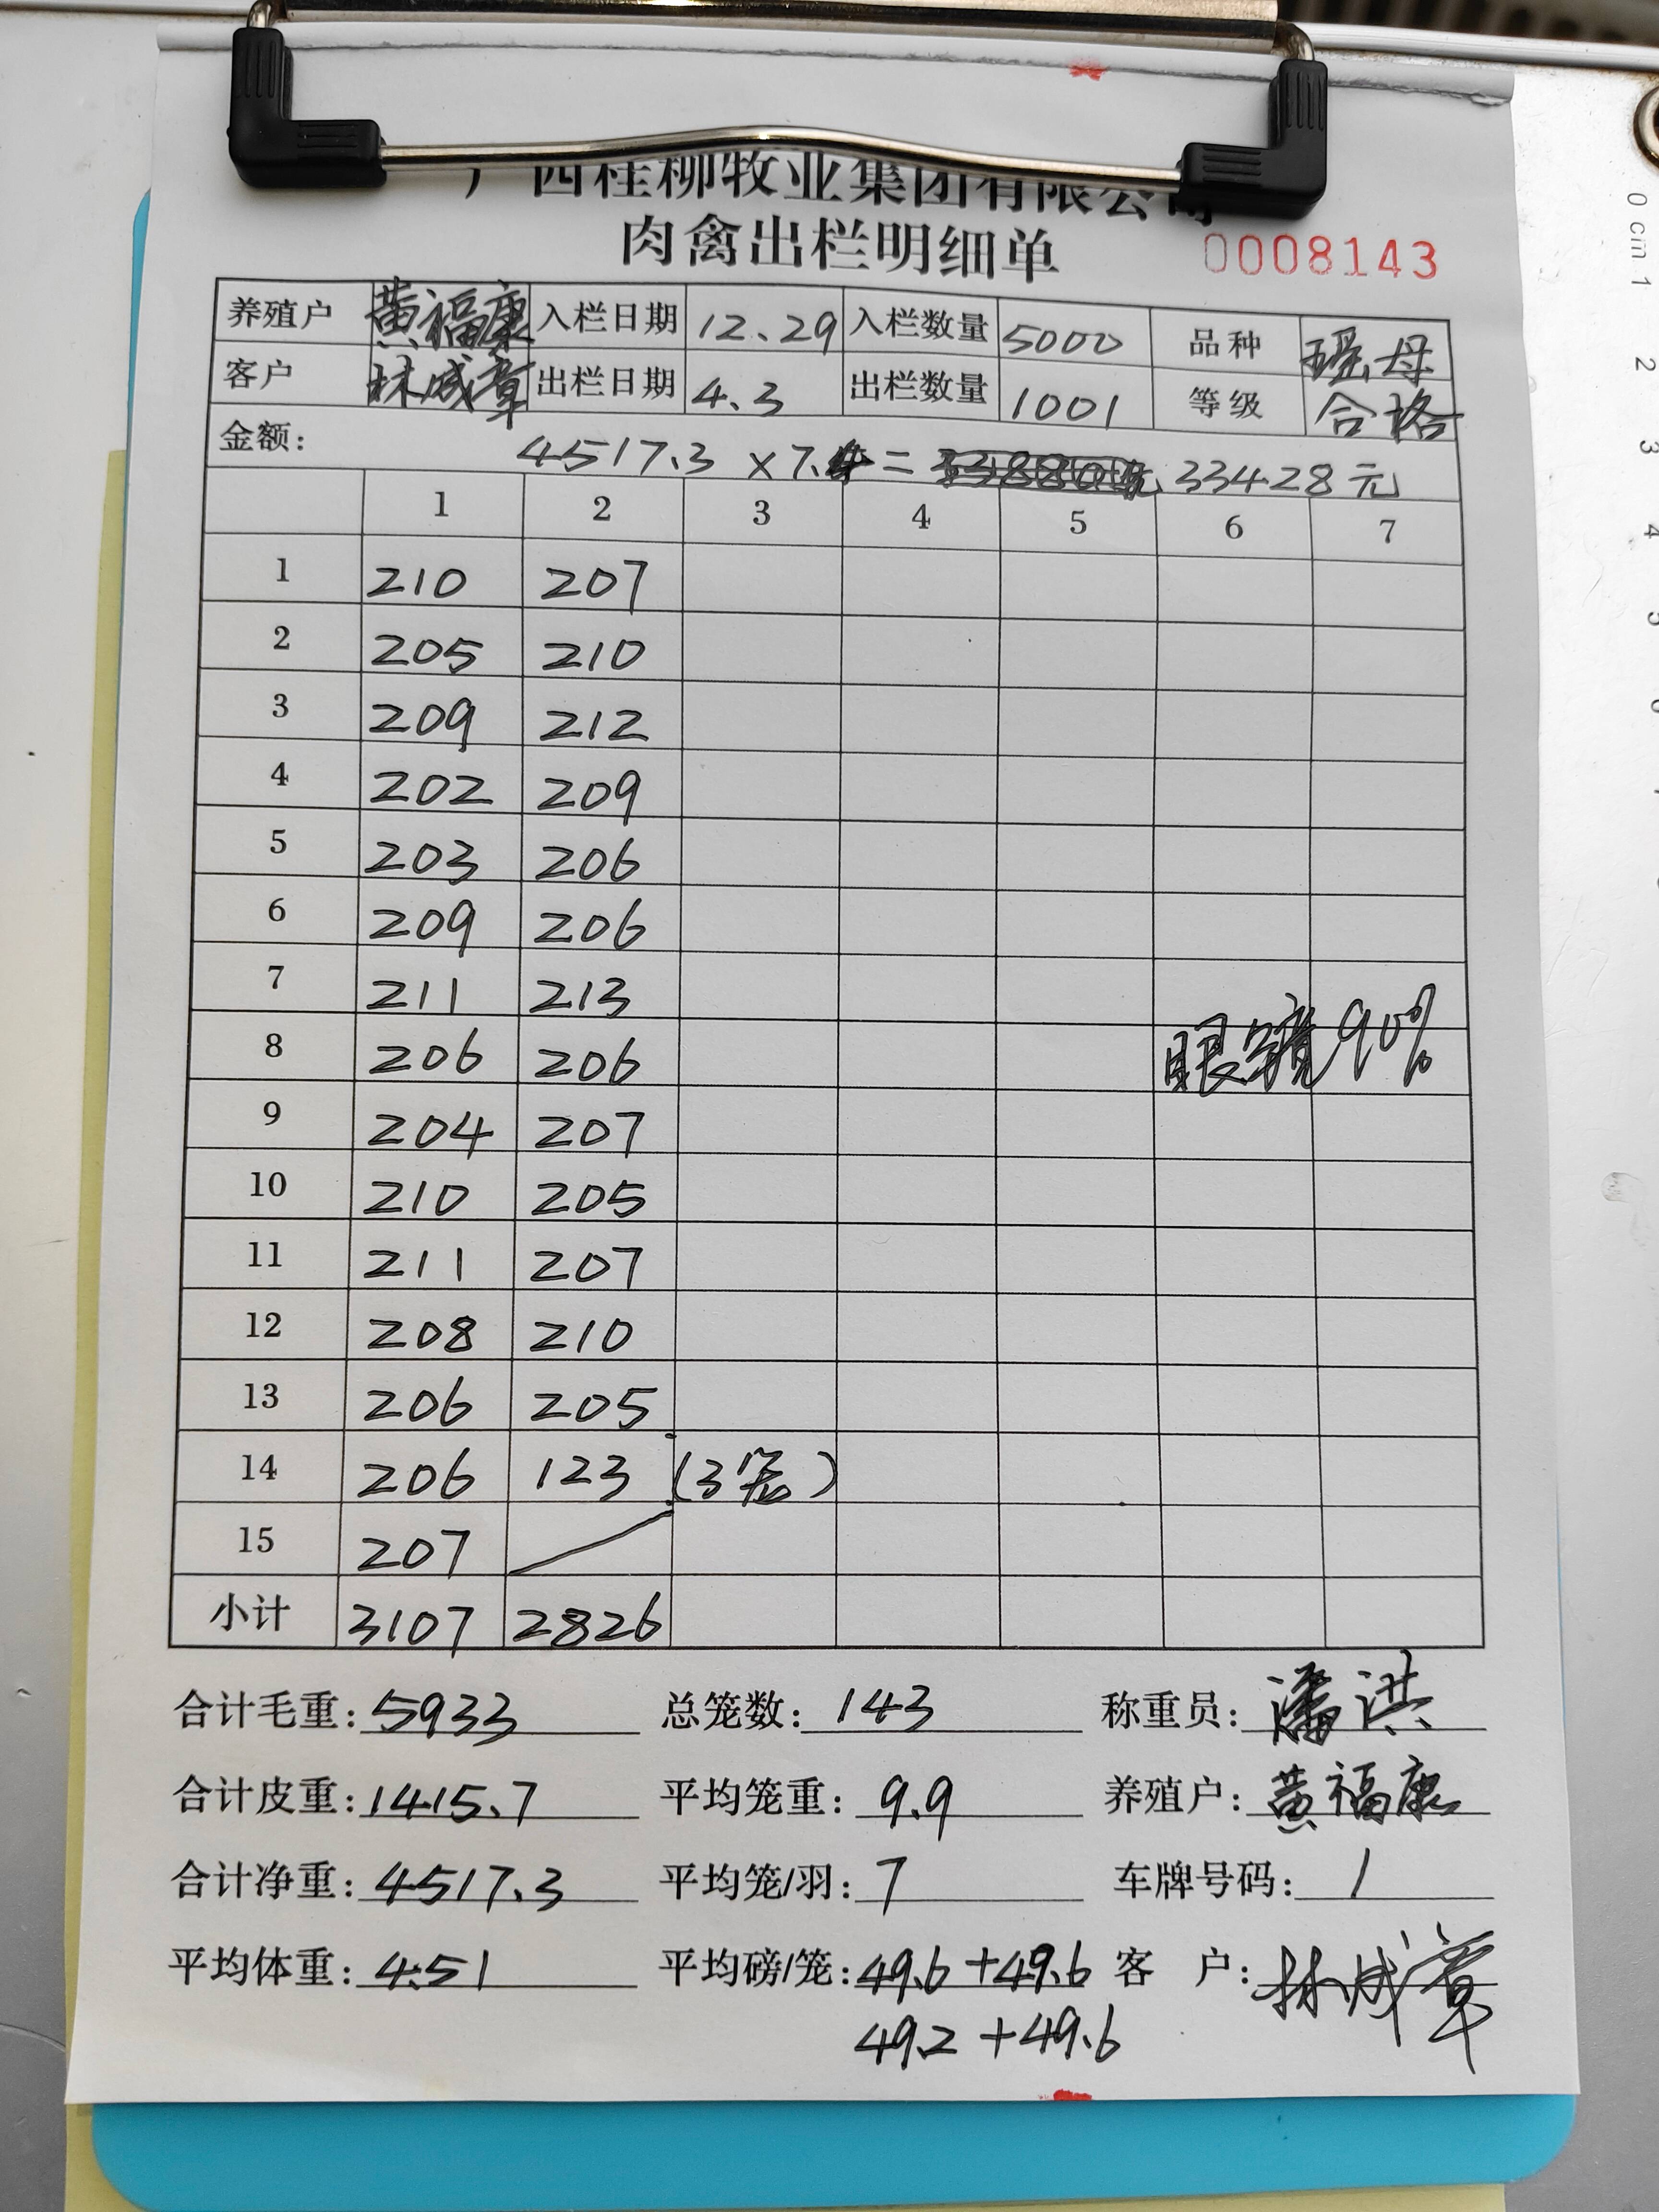 广西桂柳牧业集团有限公司
肉禽出栏明细单 0008143
养殖户 黄福康 入栏日期 12.29 入栏数量 5000 品种 瑶母
客户 林成章 出栏日期 4.3 出栏数量 1001 等级 合格
金额: 4517.3 × 7.4 = 33428元
1 2 3 4 5 6 7
1 210 207
2 205 210
3 209 212
4 202 209
5 203 206
6 209 206
7 211 213
8 206 206 眼镜90%
9 204 207
10 210 205
11 211 207
12 208 210
13 206 205
14 206 123 (3笼)
15 207
小计 3107 2826
合计毛重: 5933 总笼数: 143 称重员: 潘洪
合计皮重: 1415.7 平均笼重: 9.9 养殖户: 黄福康
合计净重: 4517.3 平均笼/羽: 7 车牌号码: 1
平均体重: 4.51 平均磅/笼: 49.6+49.6 客 户: 林成章
49.2+49.6
0 cm 1 2 3 4 5